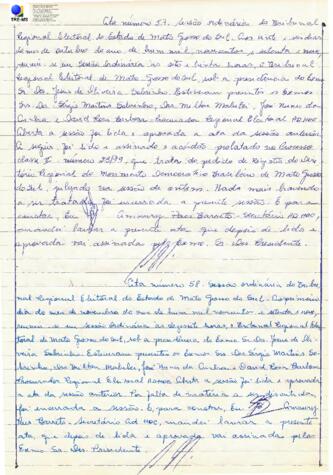 TRE-MS
Ata número 57. Sessão ordinária do Tribunal
Regional Eleitoral do Estado de Mato Grosso do Sul. Aos vinte e
de outubro do ano de hum mil, novecentos e setenta e nove,
em sua sessão ordinária às sete e trinta horas, o Tribunal
Regional Eleitoral de Mato Grosso do Sul, sob a presidência do Exmo
Sr. Des. Jesus de Oliveira Sobrinho. Estiveram presentes os Exmos
Srs. Drs. Sérgio Martins Sobrinho, Milton Malulei, José Nunes da
Cunha e David Rosa Barbosa Procurador Regional Eleitoral AD HOC
Aberta a sessão foi lida e aprovada a ata da sessão anterior.
A seguir foi lido e assinado o acórdão prolatado no Processo
classe número 23/79, que trata do pedido de Registro do
Diretório Regional do Movimento Democrático Brasileiro de Mato Grosso
do Sul, julgado na sessão de ontem. Nada mais havendo
a ser tratado, foi encerrada a presente sessão. E para
constar, Eu Amaury Pães Barreto, Secretário AD HOC,
mandei lavrar a presente ata que depois de lida e
aprovada vai assinada pelo Exmo. Sr. Des. Presidente.
Ata número 58. Sessão ordinária do Tribu-
nal Regional Eleitoral do Estado de Mato Grosso do Sul. Ao primeiro
dia do mês de novembro do ano de hum mil novecentos e setenta e nove,
em sua sessão ordinária às dezesseis horas, o Tribunal Regional Eleitoral
de Mato Grosso do Sul, sob a presidência do Exmo Sr. Des. Jesus de Oli-
veira Sobrinho. Estiveram presentes os Exmos Srs. Drs. Sérgio Martins So-
brinho, Milton Malulei, José Nunes da Cunha e David Rosa Barbosa
Procurador Regional Eleitoral AD HOC. Aberta a sessão foi lida e aprovada
a ata da sessão anterior. Por falta de matéria a ser discutida,
foi encerrada a sessão. E, para constar, Eu Amaury
Pães Barreto, Secretário Ad HOC, mandei lavrar a presente
ata, que depois de lida e aprovada vai assinada pelo
Exmo Sr. Des. Presidente